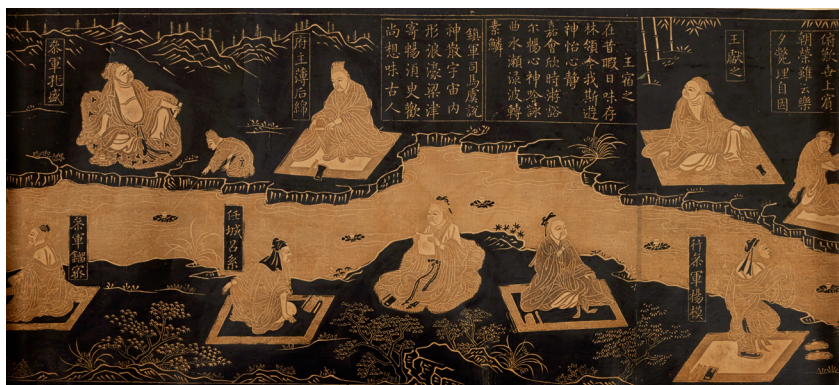 俯歎世上賓
朝榮雖云樂
夕斃理自因
王獻之
王宿之
在昔暇日味存
林嶺今我斯遊
神怡心靜
嘉會欣時游豁
尓暢心神吟詠
曲水瀨淥波轉
素鱗
鎮軍司馬虞說
神散宇宙內
形浪濠梁津
寄暢須臾歡
尚想味古人
府主簿后綿
參軍孔盛
行參軍楊模
任城呂系
參軍